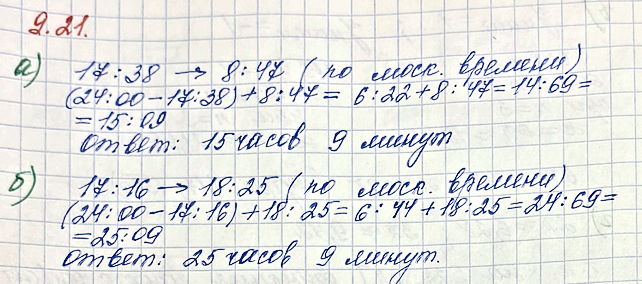 9.21.
а) 17:38 → 8:47 (по моск. времени)
(24:00-17:38)+8:47= 6:22+8:47=14:69=
=15:09
Ответ: 15 часов 9 минут
б) 17:16 → 18:25 (по моск. времени)
(24:00-17:16)+18:25=6:44+18:25=24:69=
=25:09
Ответ: 25 часов 9 минут.